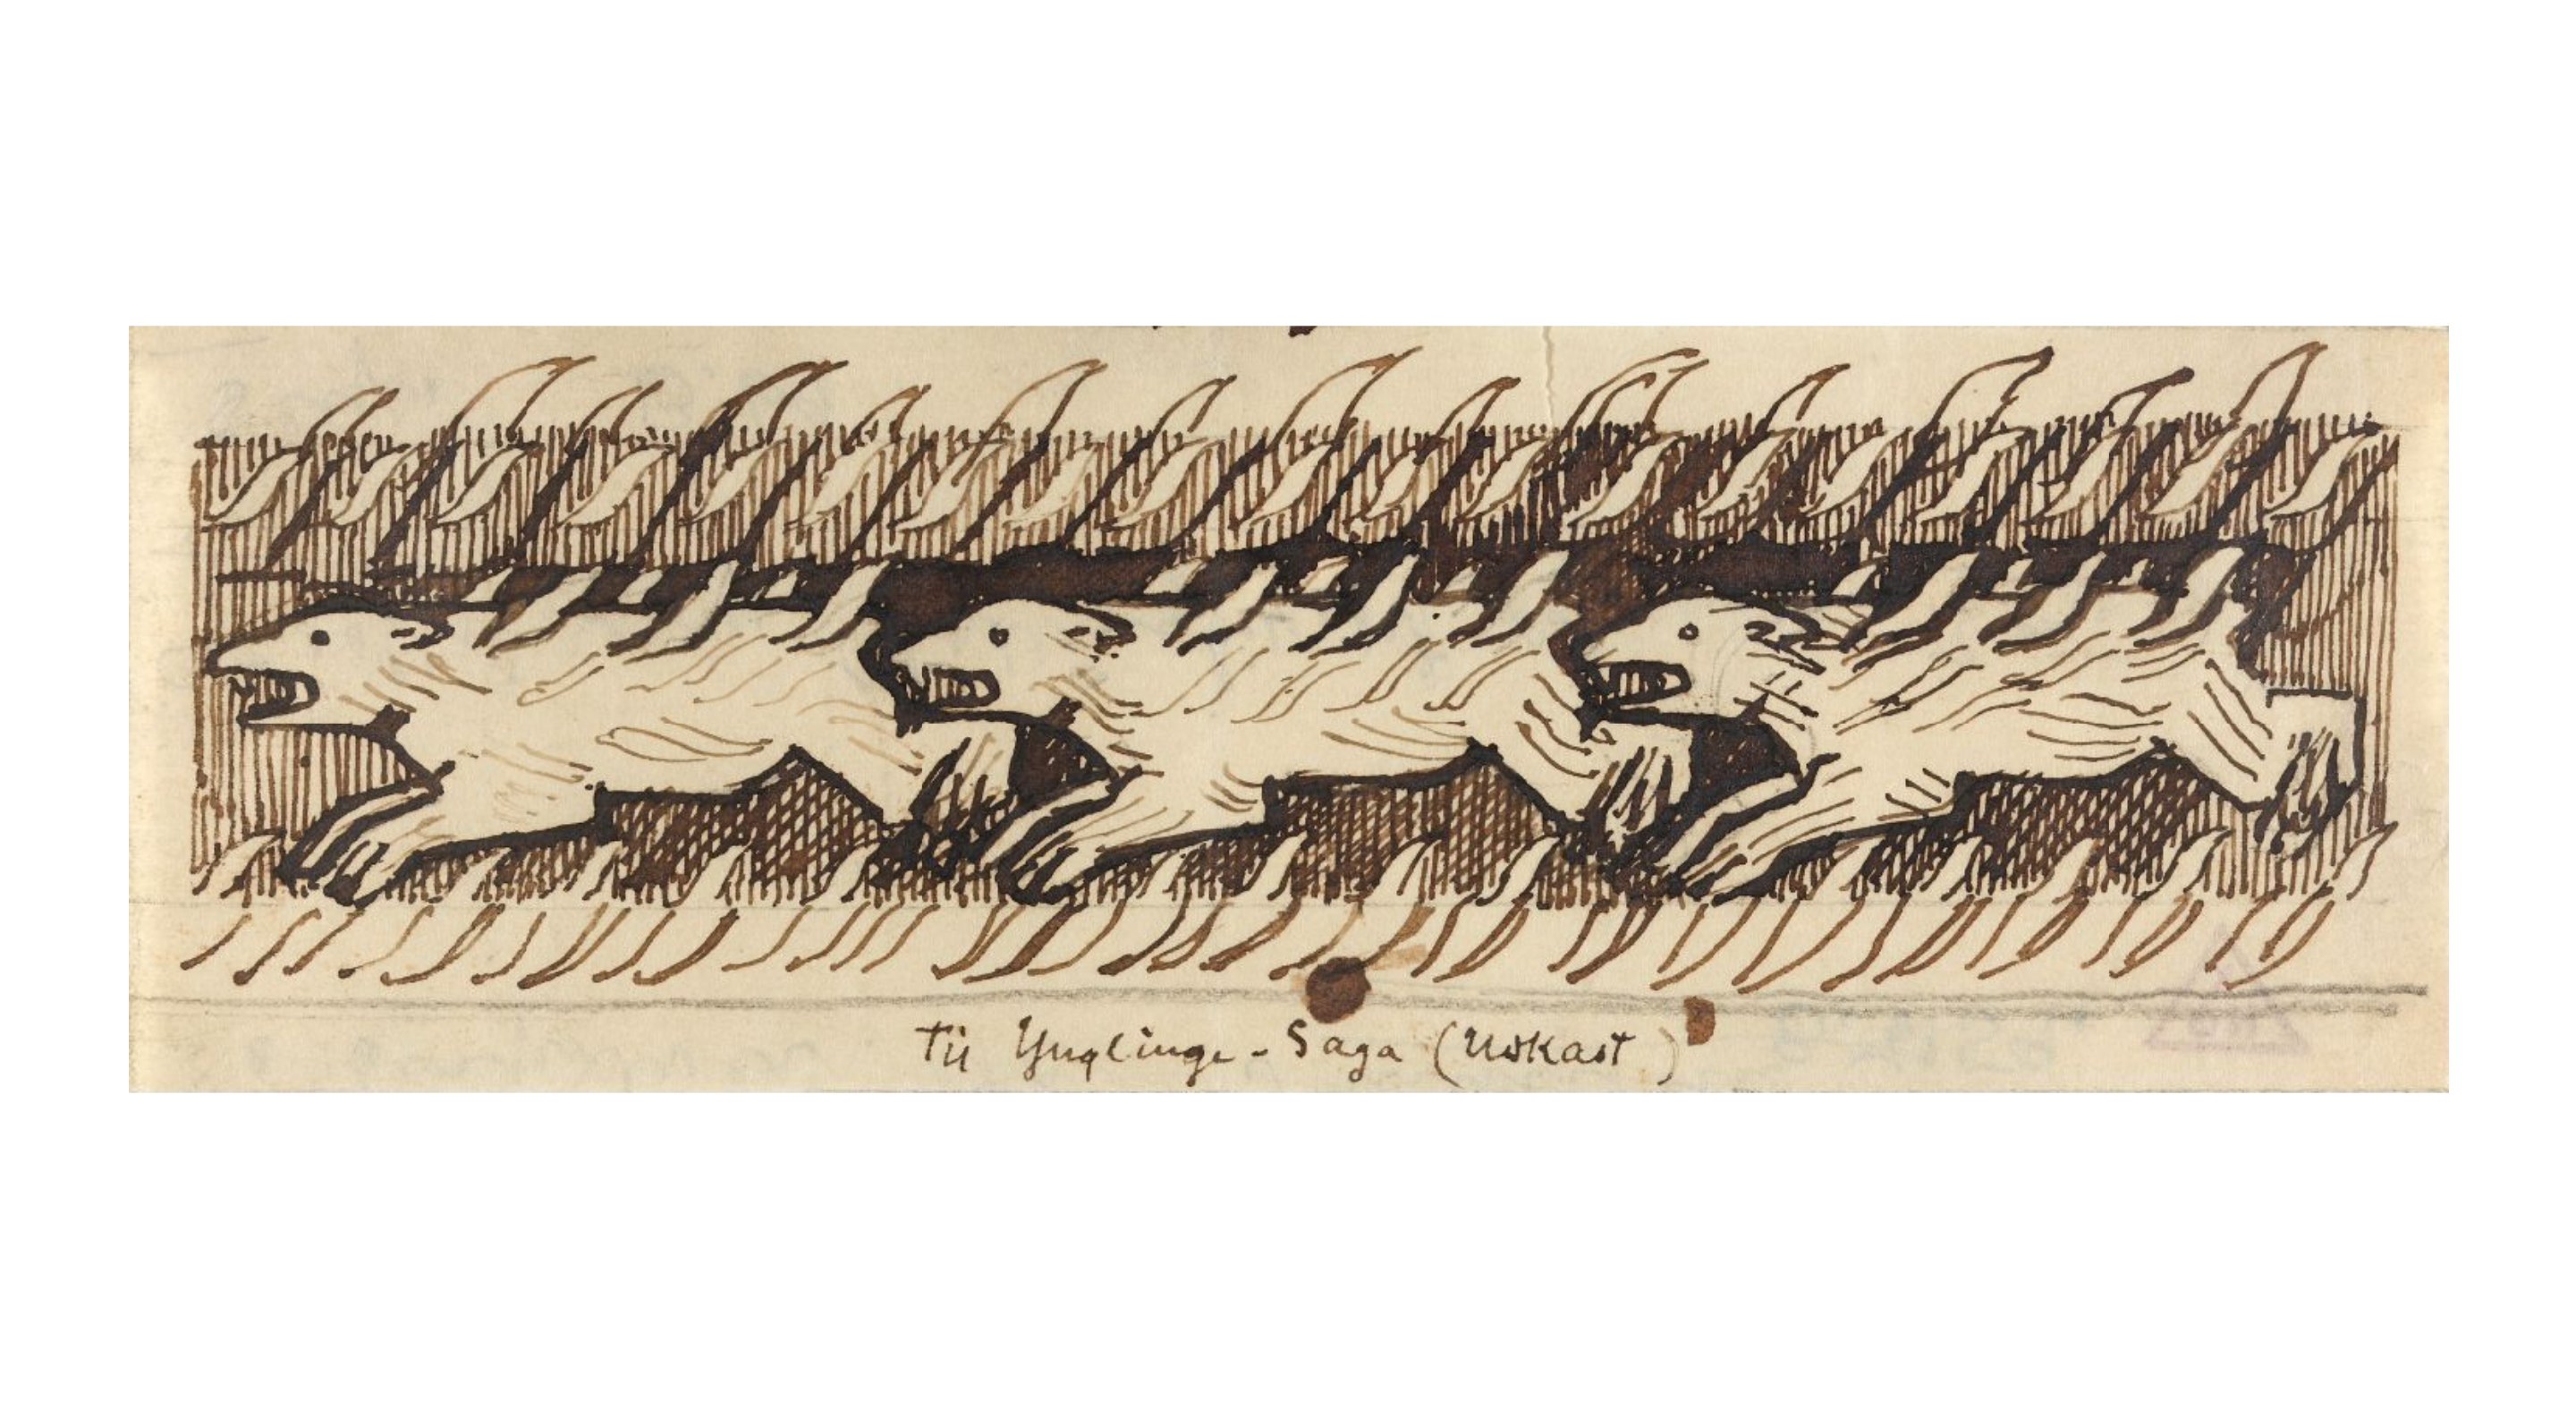 Til Ynglinge-Saga (Udkast)